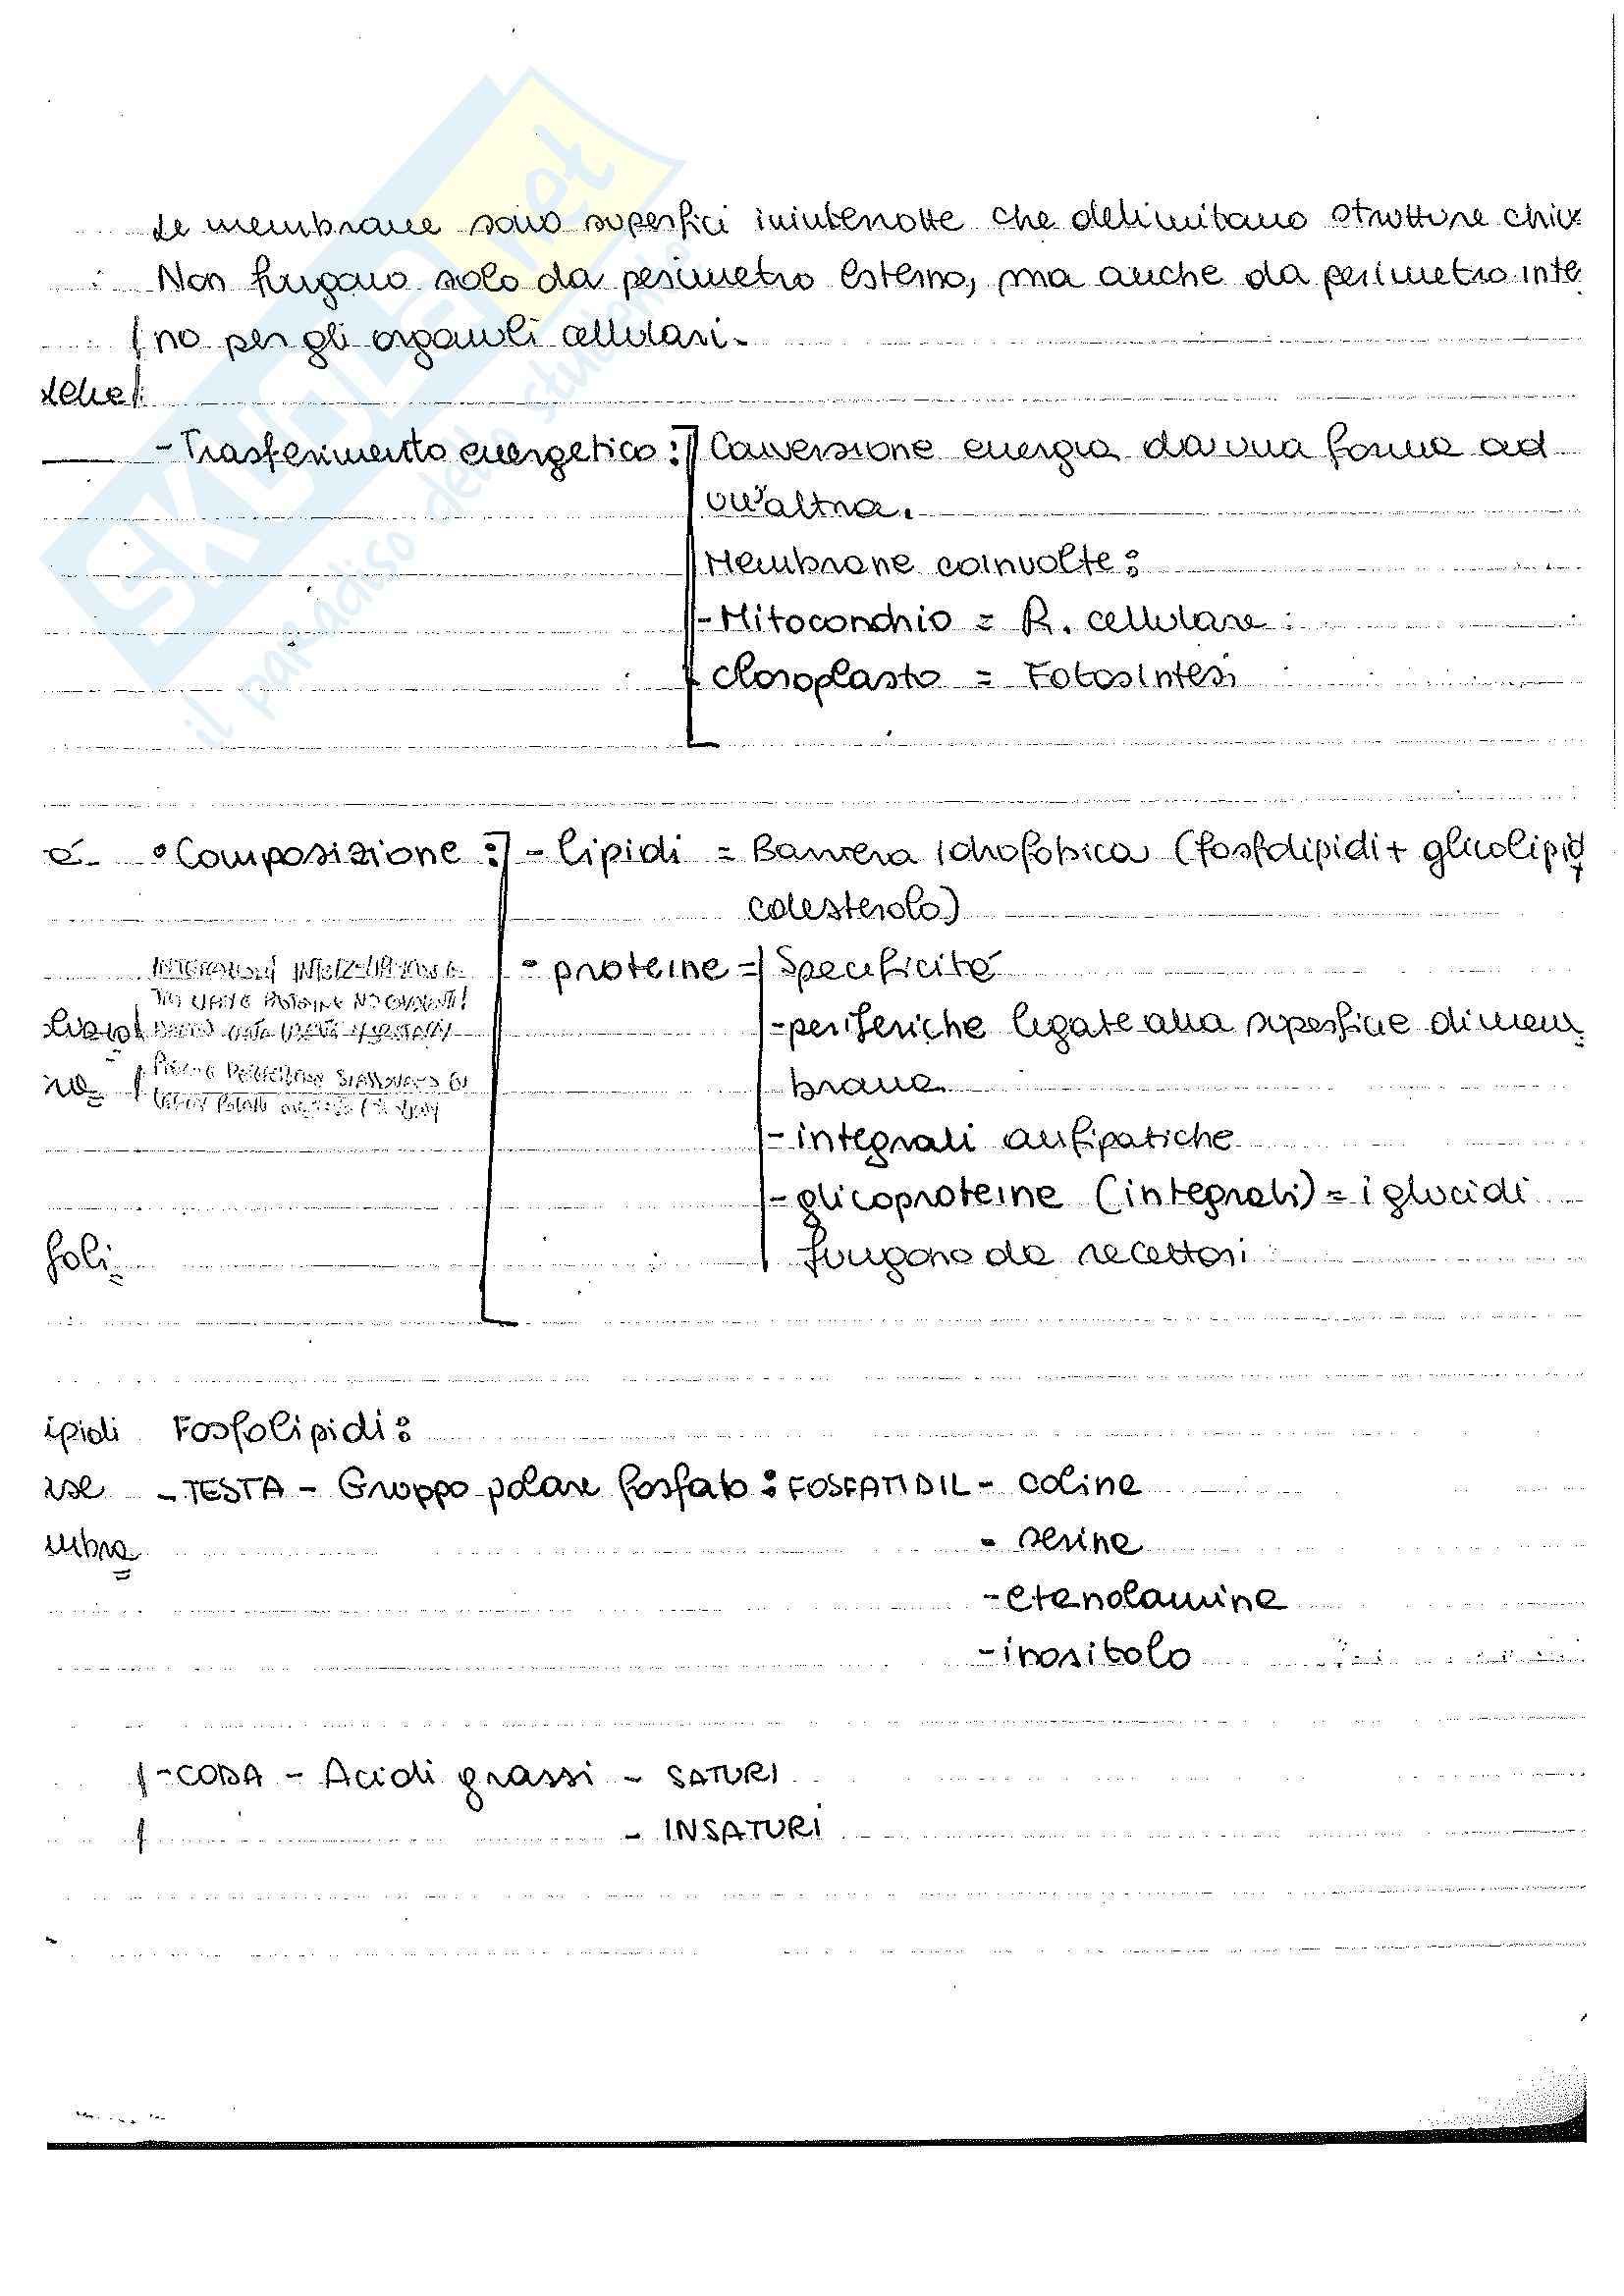 SKUOLA.net
il paradiso dello studente
Le membrane sono superfici ininterrotte che delimitano strutture chiu
Non fungono solo da perimetro esterno, ma anche da perimetro inte
no per gli organuli cellulari.
- Trasferimento energetico: Conversione energia da una forma ad
un'altra.
Membrane coinvolte:
- Mitocondrio = R. cellulare
- Cloroplasto = Fotosintesi
• Composizione: - lipidi = Barriera idrofobica (fosfolipidi + glicolipidi +
colesterolo)
- proteine = Specificità
- periferiche legate alla superficie di mem
brana
- integrali anfipatiche
- glicoproteine (integrali) = i glucidi
foli
fungono da recettori
ipidi Fosfolipidi:
- TESTA - Gruppo polare fosfato: FOSFATIDIL - colina
mbra
- serina
- etanolamina
- inositolo
- CODA - Acidi grassi - SATURI
- INSATURI